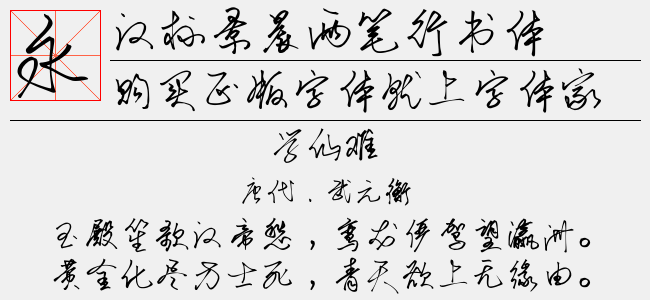 永
汉标景晨雨笔行书体
购买正版字体就上字体家
学仙难
唐代．武元衡
玉殿笙歌汉帝愁，鸾龙俨驾望瀛洲。
黄金化尽方士死，青天欲上无缘由。